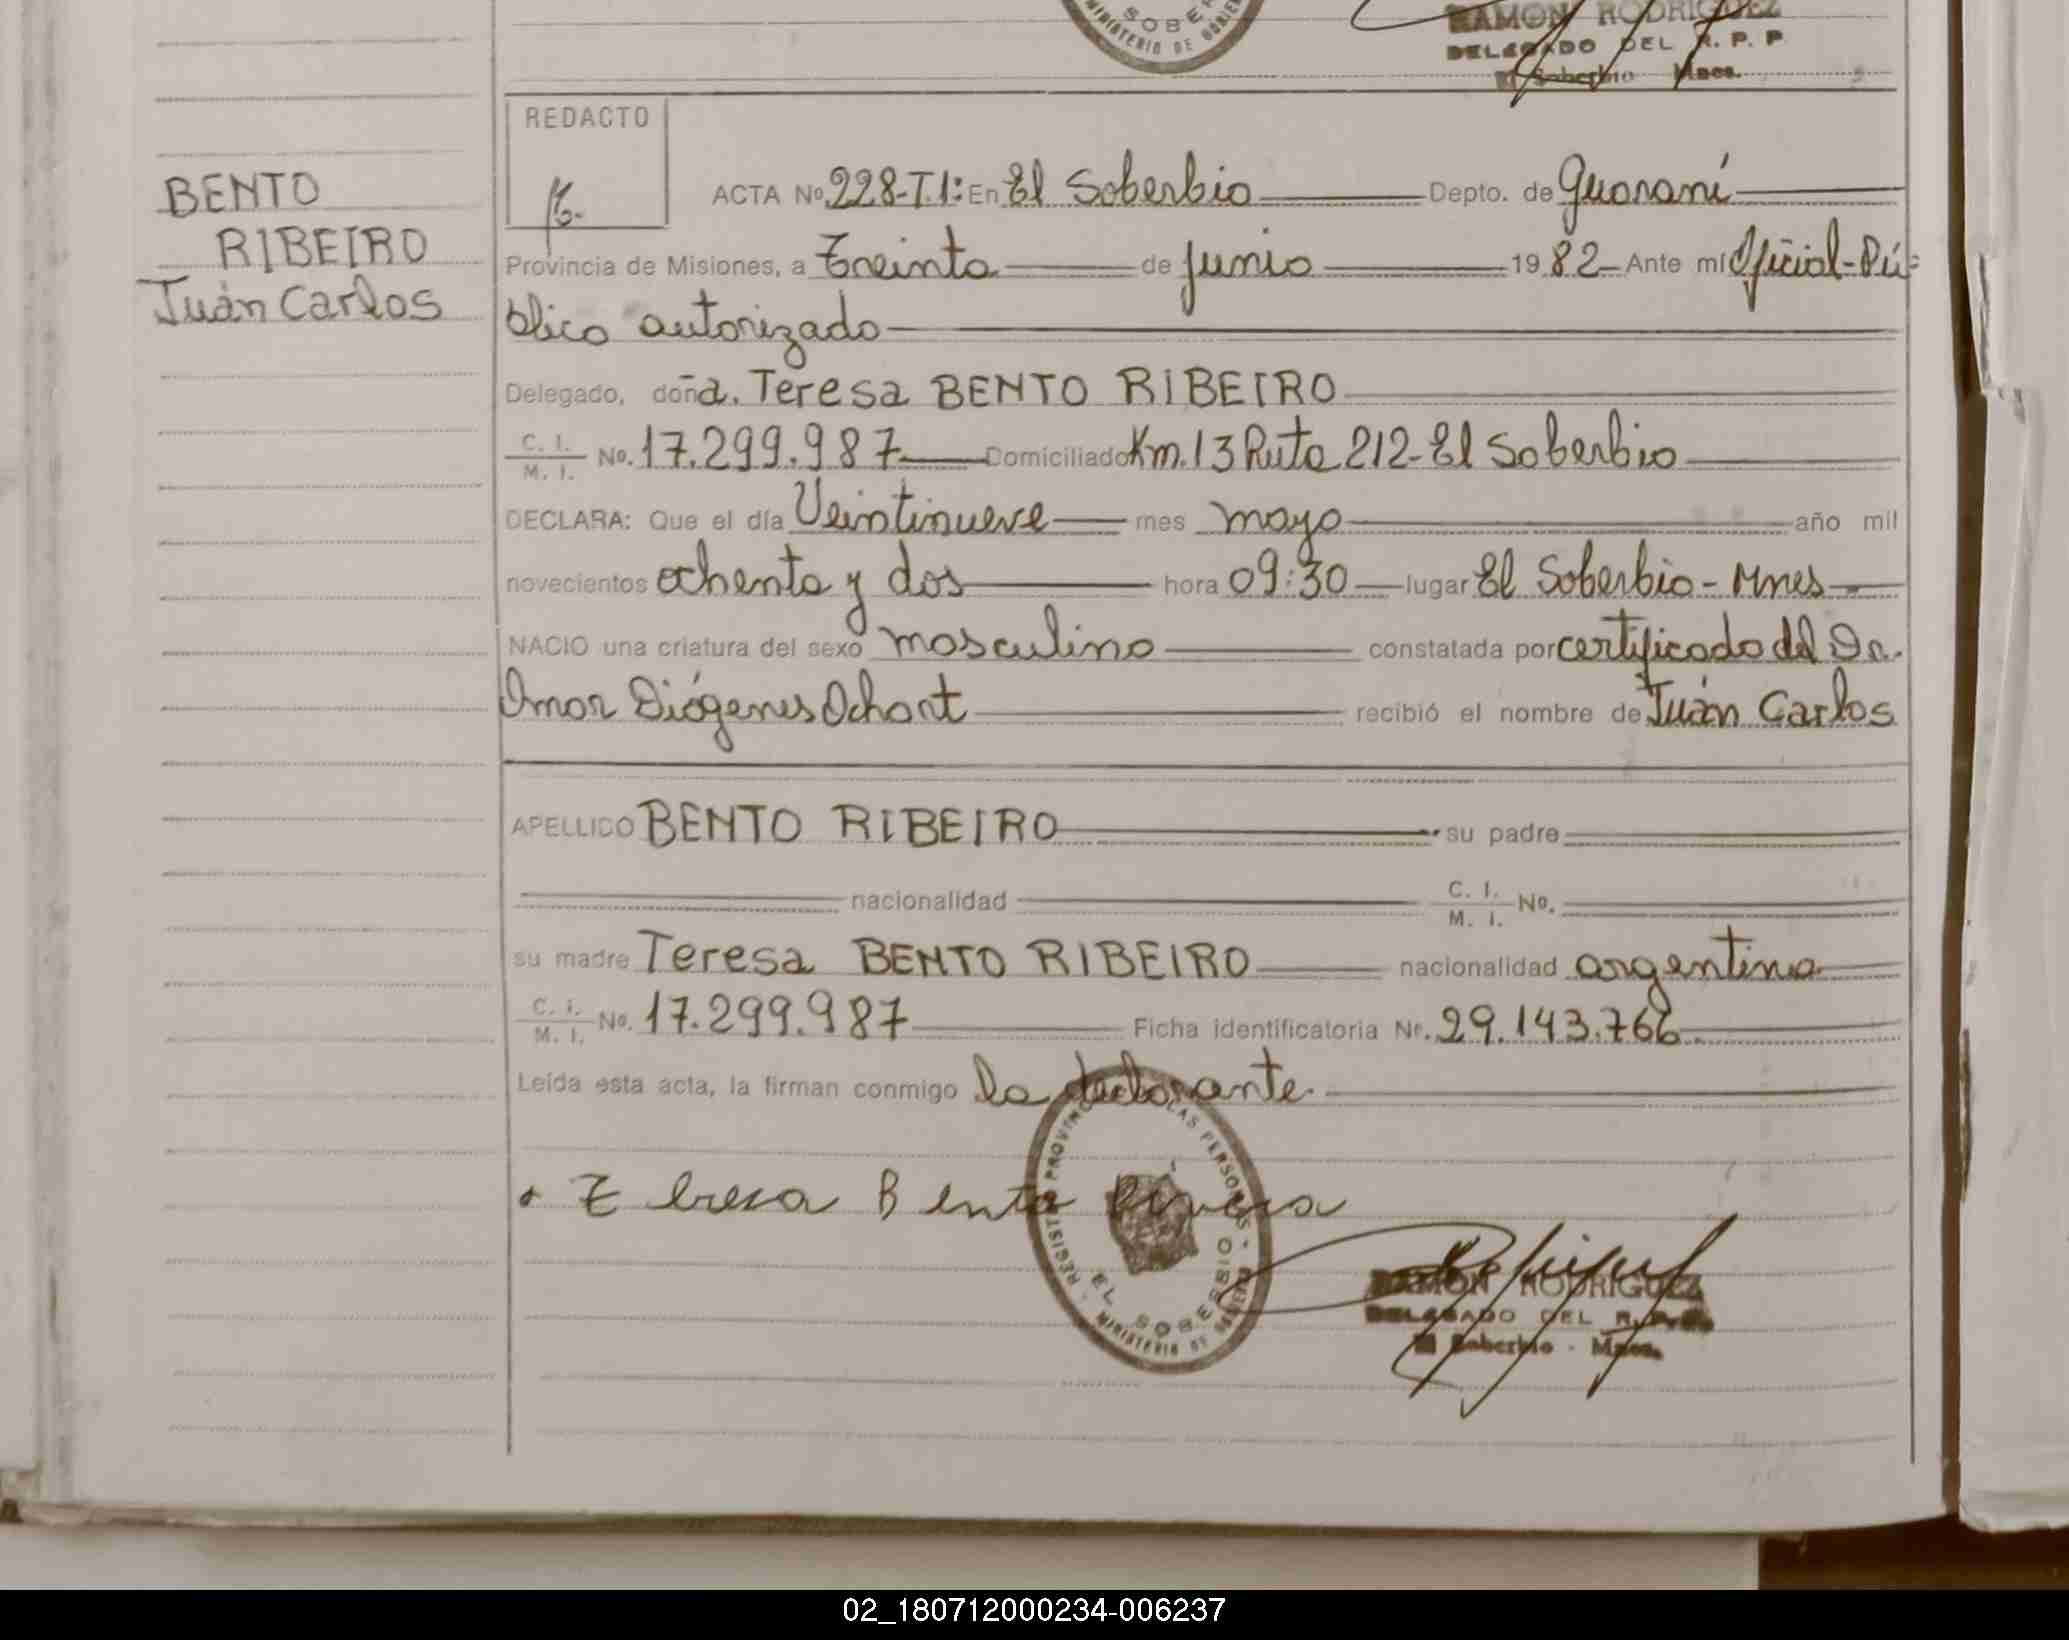 SOBER
MINISTERIO DE GOBIER
RAMON RODRIGUEZ
DELEGADO DEL R. P. P
El Soberbio Mnes.
REDACTO
BENTO
RIBEIRO
Juán Carlos
ACTA No. 228-T.1: En El Soberbio Depto. de Guaraní
Provincia de Misiones, a Treinta de junio 19 82 Ante mí Oficial-Pú-
blico autorizado
Delegado, doña. Teresa BENTO RIBEIRO
C. I. / M. I. No. 17.299.987 Domiciliado Km. 13 Ruta 212-El Soberbio
DECLARA: Que el día Veintinueve mes mayo año mil
novecientos ochenta y dos hora 09:30 lugar El Soberbio - Mnes
NACIO una criatura del sexo masculino constatada por certificado del Dr.
Omar Diógenes Ochart recibió el nombre de Juán Carlos
APELLIDO BENTO RIBEIRO su padre
nacionalidad C. I. / M. I. No.
su madre Teresa BENTO RIBEIRO nacionalidad argentina
C. I. / M. I. No. 17.299.987 Ficha identificatoria Nº. 29.143.766
Leída esta acta, la firman conmigo la declarante.
REGISTRO PROVINC LAS PERSONAS - MINISTERIO DE GOBIERNO
EL SOBERBIO
RAMON RODRIGUEZ
DELEGADO DEL R. P. P.
El Soberbio - Mnes.
02_180712000234-006237